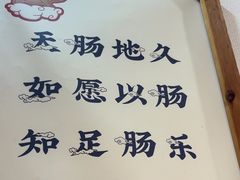 天肠地久
如愿以肠
知足肠乐